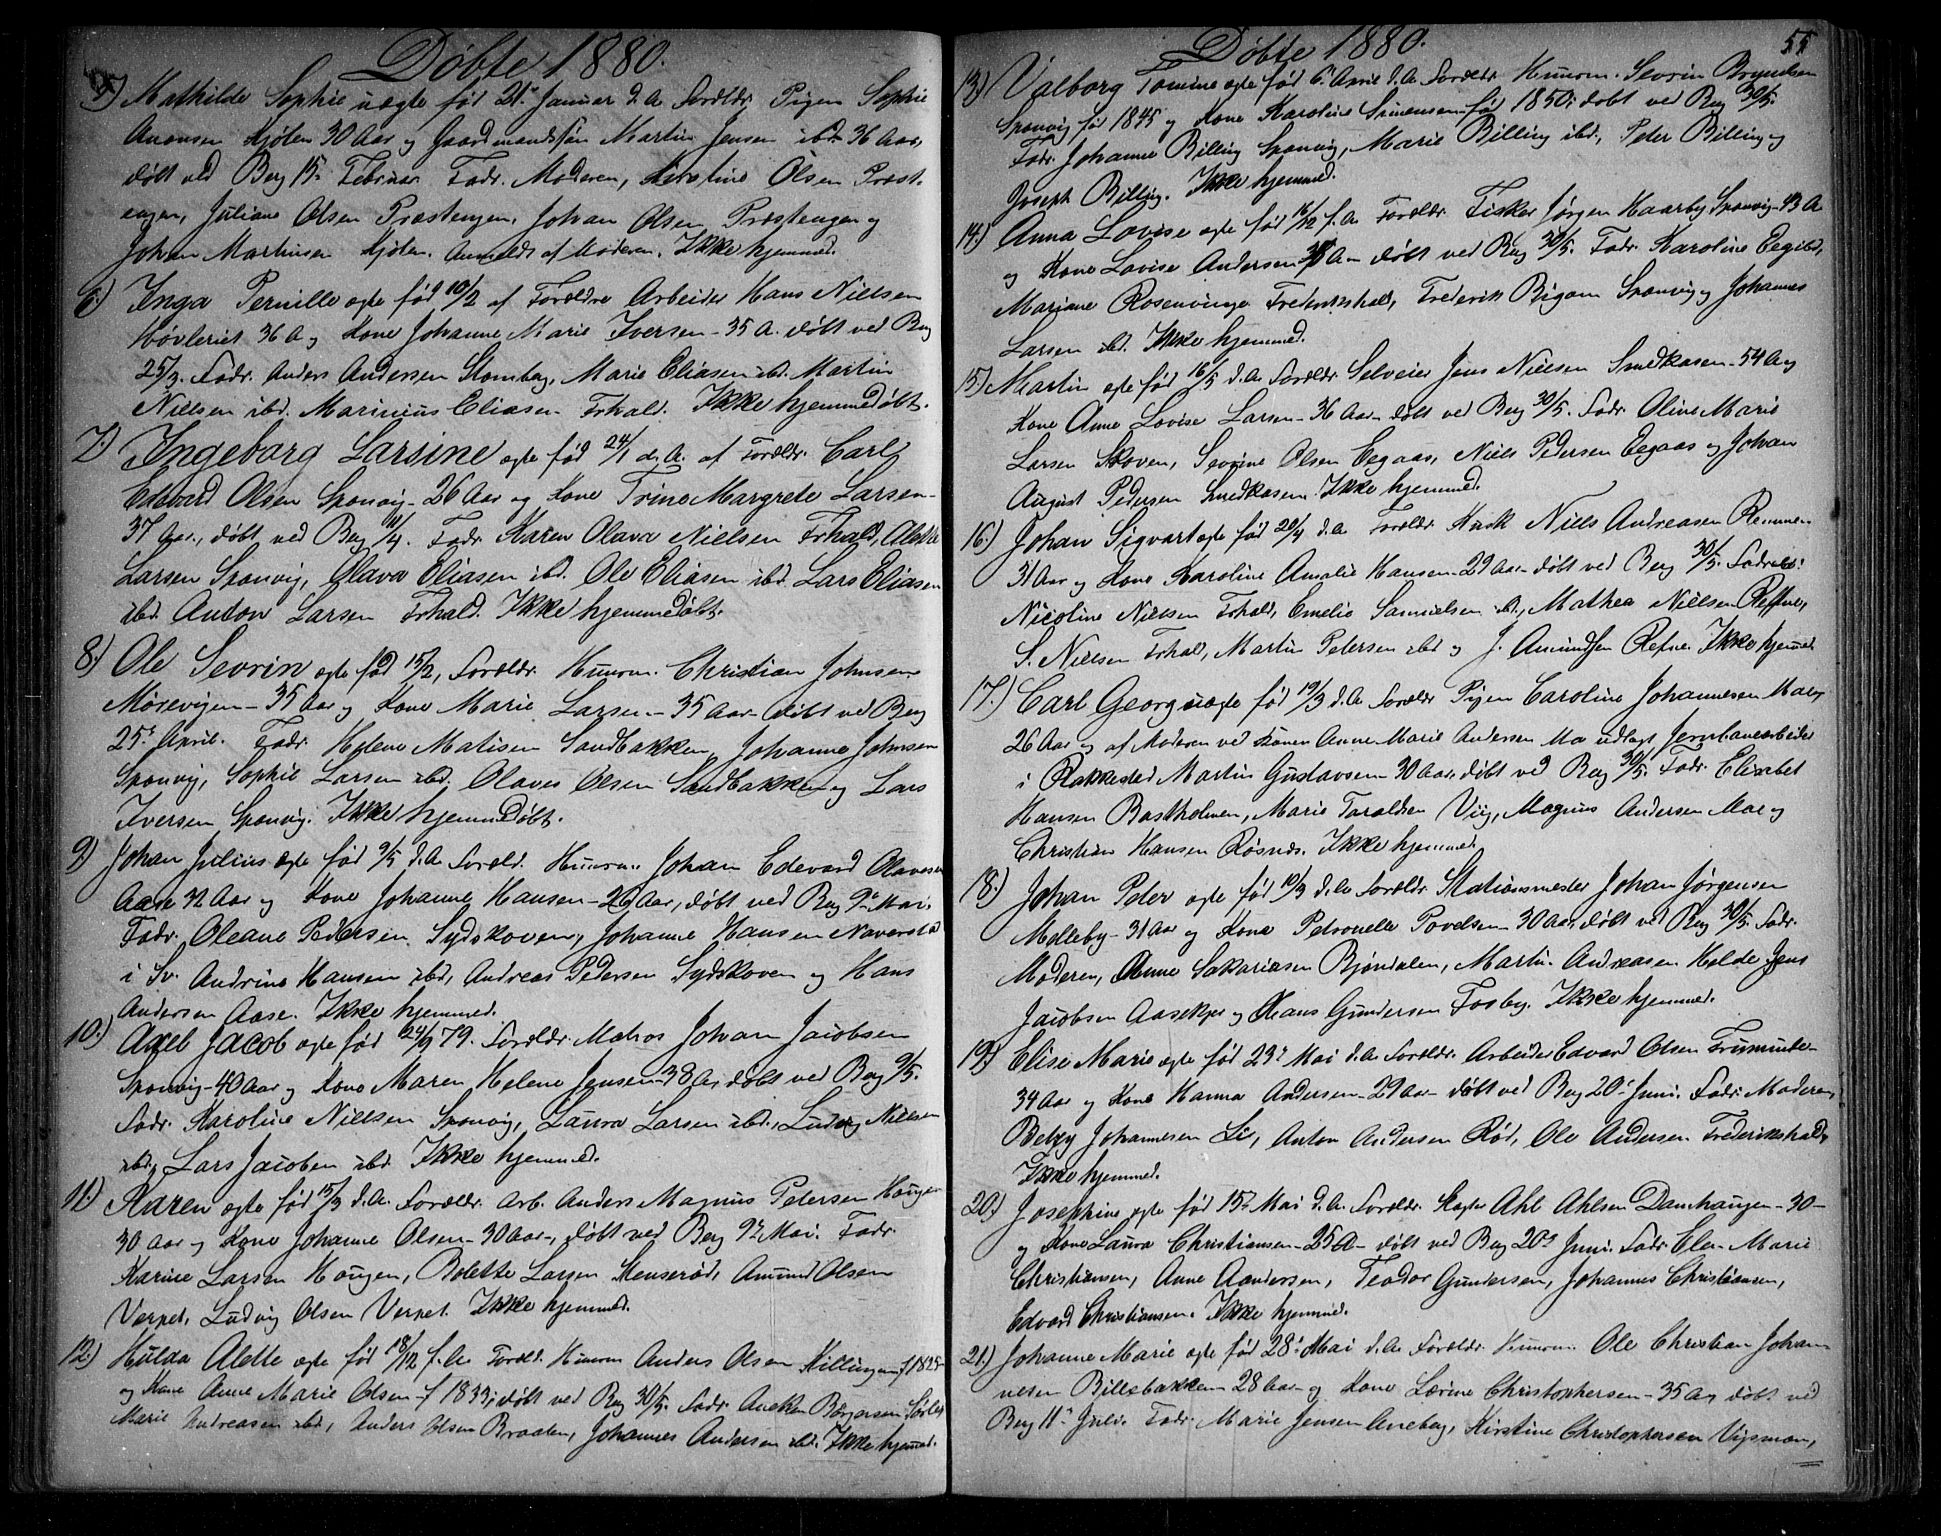 Döbte 1880.
5.) Mathilde Sophie uægte född 21de Januar d. A. Foreldr. Pigen Sophie
Anonsen Kjölen 30 Aar og Gaardmandssön Martin Jensen ibd. 36 Aar,
döbt ved Berg 15de Februar Fadr. Moderen, Kerstine Olsen Præst-
engen, Juliane Olsen Præstengen, Johan Olsen Præstengen og
Johan Martinsen Kjölen. Anmeldt af Moderen. Ikke hjemmed.
6.) Inga Pernille ægte född 10/2 af Foreldre Arbeider Hans Nielsen
Hövleriet 36 A og Kone Johanne Marie Iversen - 35 A. döbt ved Berg
25/3. Fadr. Anders Andersen Stomberg, Marie Eliasen ibd. Martin
Nielsen ibd. Marinius Eliasen Frhald. Ikke hjemmedöbt.
7.) Ingeborg Larsine ægte född 24/1 d. A. af Foreldr. Carl
Edvard Olsen Sponvig - 26 Aar og Kone Trine Margrete Larsen -
37 Aar, döbt ved Berg 11/4. Fadr. Karen Olava Nielsen Frhald, Alette
Larsen Sponvig, Olava Eliasen ibd. Ole Eliasen ibd. Lars Eliasen
ibd. Anton Larsen Frhald. Ikke hjemmedöbt.
8.) Ole Sevrin ægte född 15/2, Foreldr. Huusm. Christian Johnsen
Mörevigen - 35 Aar og Kone Marie Larsen - 35 Aar döbt ved Berg
25de April. Fadr. Helene Matisen Sandbakken, Johanne Johnsen
Sponvig, Sophie Larsen ibd. Olaves Olsen Sandbakken og Lars
Iversen Sponvig. Ikke hjemmedöbt.
9.) Johan Julius ægte född 9/5 d. A. Foreld. Huusm. Johan Edevard Olavesen
Aase 32 Aar og Kone Johanne Hansen - 26 Aar, döbt ved Berg 9de Mai.
Fadr. Oleane Pedersen Sydskoven, Johanne Hansen Naverstad
i Sv. Andrine Hansen ibd, Andreas Pedersen Sydskoven og Hans
Andersen Aase. Ikke hjemmed.
10.) Axel Jacob ægte född 24/9 79. Foreldr. Matros Johan Jacobsen
Sponvig - 40 Aar og Kone Maren Helene Jensen - 38 A, döbt ved Berg 9/5.
Fadr. Karoline Nielsen Sponvig, Laura Larsen ibd., Ludvig Nielsen
ibd, Lars Jacobsen ibd. Ikke hjemmed.
11.) Karen ægte född 15/3 d. A. Foreldr. Arb. Anders Magnus Petersen Hougen
30 Aar og Kone Johanne Olsen - 30 Aar, döbt ved Berg 9de Mai. Fadr.
Karine Larsen Hougen, Bolette Larsen Stenseröd, Amund Olsen
Verpet, Ludvig Olsen Verpet. Ikke hjemmed.
12.) Hulda Alette ægte född 18/12 f. A. Foreld. Huusm. Anders Olsen Killingen f 1825
og Kone Anne Marie Olsen - f 1833; döbt ved Berg 30/5. Fadr. Aneken Börgersen
Marie Andreasen ibd, Anders Olsen Braaten, Johannes Andersen ibd. Ikke hjemmed.
Döbte 1880.
55
13.) Valborg Tomine ægte född 6te April d. A. Foreldr. Huusm. Sevrin Bryndsen
Sponvig föd 1845 og Kone Karoline Simensen föd 1850; döbt ved Berg 30/5.
Fadr. Johanne Billing Sponvig, Marie Billing ibd., Peter Billing og
Joseph Billing. Ikke hjemmed.
14.) Anna Lovise ægte född 16/12 f. A. Foreldr. Fisker Jörgen Haarby Sponvig - 43 A
og Kone Lovise Andersen A - döbt ved Berg 30/5. Fadr. Karoline Eeg ibd,
Mariane Rosenvinge Frederikshald, Frederik Bigom Sponvig og Johannes
Larsen ibd. Ikke hjemmed.
15.) Martin ægte född 16/5 d. A. Foreldr. Selveier Jens Nielsen Smedkasen - 54 A og
Kone Anne Lovise Larsen - 36 Aar - döbt ved Berg 30/5. Fadr. Oline Marie
Larsen Skoven, Sevrine Olsen Eegaas, Niels Pedersen Eegaas og Johan
August Pedersen Smedkasen. Ikke hjemmed.
16.) Johan Sigvart ægte född 20/4 d. A. Foreldr. Kusk Niels Andreasen Remmen
31 Aar og Kone Karoline Amalie Hansen - 29 Aar - döbt ved Berg 30/5. Faddere:
Nicoline Nielsen Frhald, Emelie Samuelsen ibd., Mathea Nielsen Reffne,
S. Nielsen Frhald, Martin Petersen ibd og J. Amundsen Refne. Ikke hjemmed.
17.) Carl Georg uægte född 19/3 d. A. Foreldr. Pigen Caroline Johannesen Mar
26 Aar og af Moderen ved Konen Anne Marie Andersen Ma udlagt Jernbanearbeider
i Rakkestad Martin Gustavsen - 30 Aar, döbt ved Berg 30/5. Fadr. Elisabet
Hansen Bastholmen, Marie Taraldsen Viig, Magnus Andersen Mar og
Christian Hansen Rösnæs. Ikke hjemmed.
18.) Johan Peter ægte född 10/3 d. A. Foreldr. Stationsmester Johan Jörgensen
Melleby - 31 Aar og Kone Petronelle Povelsen - 30 Aar, döbt ved Berg 30/5. Fadr.
Moderen, Anne Sakariasen Bjöndalen, Martin Andreasen Helde, Jens
Jacobsen Aasekjer og Hans Gundersen Fosby. Ikke hjemmed.
19.) Elise Marie ægte född 23de Mai d. A. Foreldr. Arbeider Edvard Olsen
34 Aar og Kone Hanna Andersen - 29 Aar - döbt ved Berg 20de Juni. Fadr. Moderen,
Betzy Johannesen Li, Anton Andersen Röd, Ole Andersen Frederikshald,
Ikke hjemmed.
20.) Josephine ægte född 15de Mai d. A. Foreldr. Skogter Ahl Ahlsen Damhaugen - 30 -
og Kone Laura Christiansen - 25 A - döbt ved Berg 20de Juni. Fadr. Elen Marie
Christiansen, Anne Aandersen, Teodor Gundersen, Johannes Christiansen,
Edvard Christiansen. Ikke hjemmed.
21.) Johanne Marie ægte född 28de Mai d. A. Foreldr. Huusm. Ole Christian Johan-
nesen Billebakken - 28 Aar - og Kone Lorine Christophersen - 35 A, döbt ved
Berg 11te Juli. Fadr. Marie Jensen Aneberg, Kirstine Christophersen Vigsmoen,